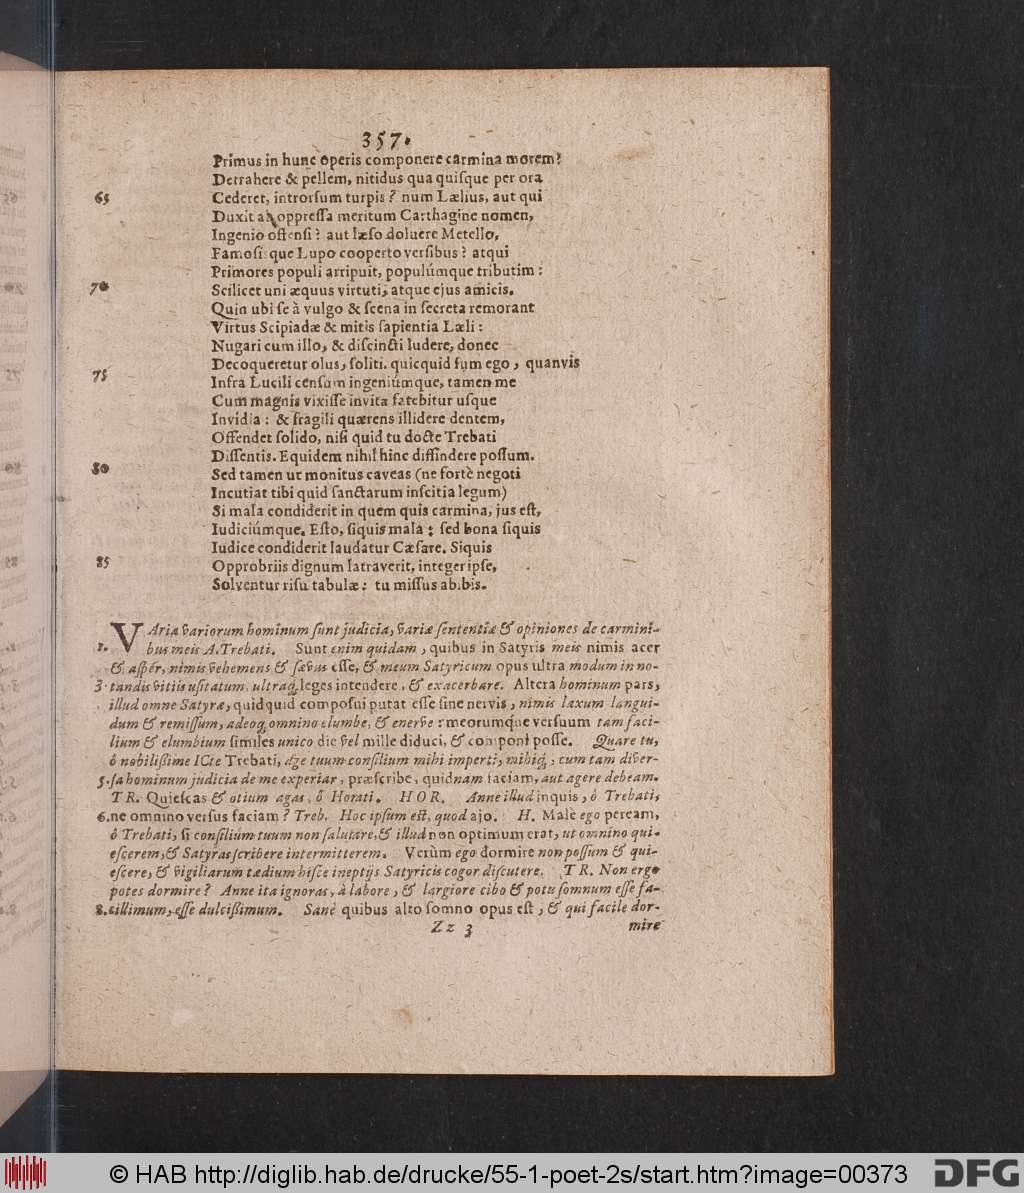 357.
Primus in hunc operis componere carmina morem?
Detrahere & pellem, nitidus qua quiſque per ora
65 Cederet, introrſum turpis? num Lælius, aut qui
Duxit ab oppreſſa meritum Carthagine nomen,
Ingenio offenſi? aut læſo doluere Metello,
Famoſisque Lupo cooperto verſibus? atqui
Primores populi arripuit, populúmque tributim:
70 Scilicet uni æquus virtuti, atque ejus amicis.
Quin ubi ſe à vulgo & ſcena in ſecreta remorant
Virtus Scipiadæ & mitis ſapientia Læli:
Nugari cum illo, & diſcincti ludere, donec
Decoqueretur olus, ſoliti. quicquid ſum ego, quanvis
75 Infra Lucili cenſum ingeniúmque, tamen me
Cum magnis vixiſſe invita fatebitur uſque
Invidia: & fragili quærens illidere dentem,
Offendet ſolido, niſi quid tu docte Trebati
Diſſentis. Equidem nihil hinc diffindere poſſum.
80 Sed tamen ut monitus caveas (ne fortè negoti
Incutiat tibi quid ſanctarum inſcitia legum)
Si mala condiderit in quem quis carmina, jus eſt,
Iudiciúmque. Eſto, ſiquis mala: ſed bona ſiquis
Iudice condiderit laudatur Cæſare. Siquis
85 Opprobriis dignum latraverit, integer ipſe,
Solventur riſu tabulæ: tu miſſus abibis.
VAria variorum hominum ſunt judicia, variæ ſententiæ & opiniones de carmini-
1. bus meis A. Trebati. Sunt enim quidam, quibus in Satyris meis nimis acer
& aſper, nimis vehemens & ſævus eſſe, & meum Satyricum opus ultra modum in no-
3. tandis vitiis uſitatum, ultraq́; leges intendere, & exacerbare. Altera hominum pars,
illud omne Satyræ, quidquid compoſui putat eſſe ſine nervis, nimis laxum langui-
dum & remiſſum, adeoq́; omnino elumbe, & enerve: meorumq́ue verſuum tam faci-
lium & elumbium ſimiles unico die vel mille diduci, & componi poſſe. Quare tu,
ô nobiliſſime ICte Trebati, age tuum conſilium mihi imperti, mihiq́;, cum tam diver-
5. ſa hominum judicia de me experiar, præſcribe, quidnam faciam, aut agere debeam.
TR. Quieſcas & otium agas, ô Horati. HOR. Anne illud inquis, ô Trebati,
6. ne omnino verſus faciam? Treb. Hoc ipſum eſt, quod ajo. H. Malè ego peream,
ô Trebati, ſi conſiliúm tuum non ſalutare, & illud non optimum erat, ut omnino qui-
eſcerem, & Satyras ſcribere intermitterem. Verùm ego dormire non poſſum & qui-
eſcere, & vigiliarum tædium hiſce ineptijs Satyricis cogor diſcutere. TR. Non ergo
potes dormire? Anne ita ignoras, à labore, & largiore cibo & potu ſomnum eſſe fa-
8. cillimum, eſſe dulciſſimum. Sanè quibus alto ſomno opus eſt, & qui facile dor-
Zz 3 mire
© HAB http://diglib.hab.de/drucke/55-1-poet-2s/start.htm?image=00373 DFG